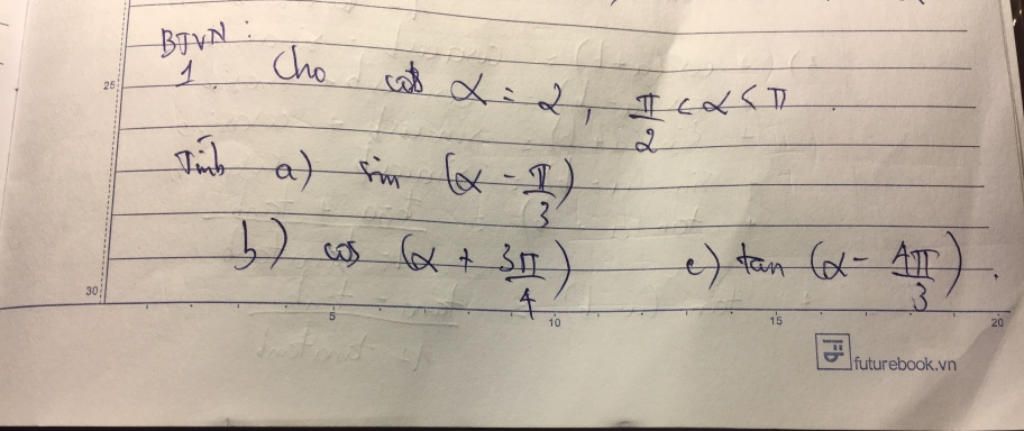 BTVN:
1 Cho cot α = 2, π/2 < α < π
Tính a) sin (α - π/3)
b) cos (α + 3π/4) c) tan (α - 4π/3).
25
30
5 10 15 20
futurebook.vn